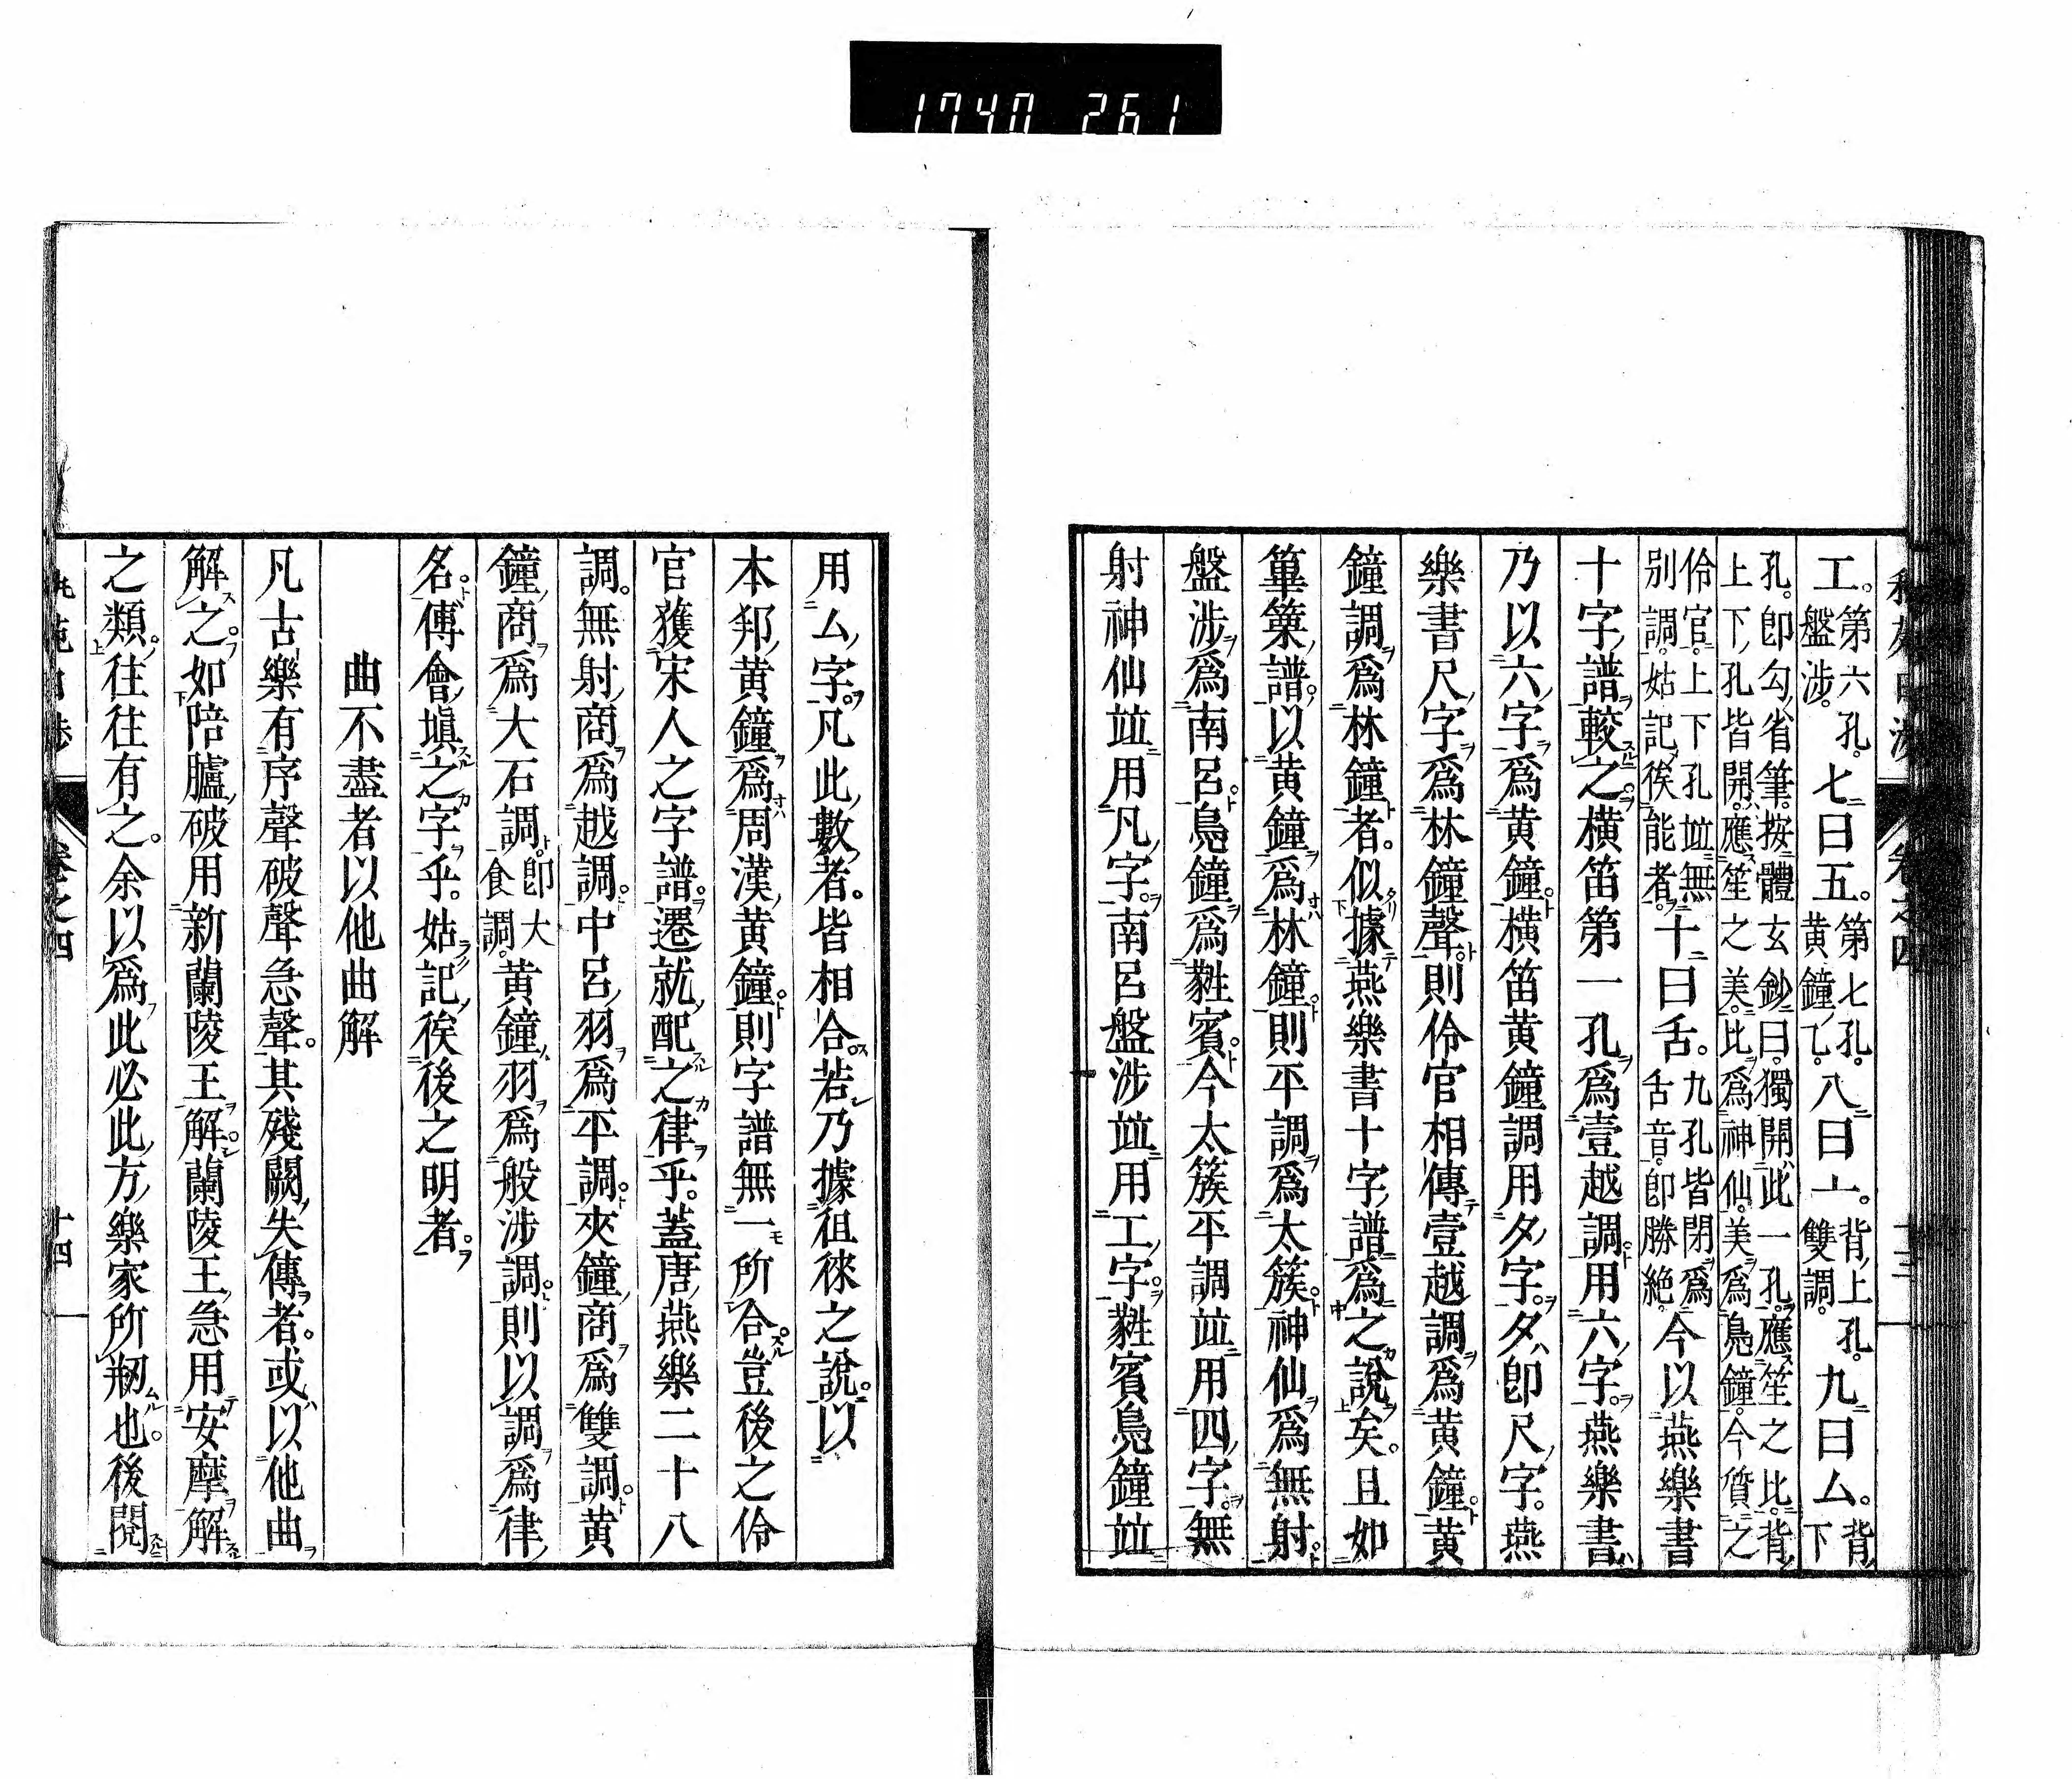 1740 261
工。第六孔。盤涉。七曰五。第七孔。黃鐘乙。八曰亠。背上孔。雙調。九曰厶。背下
孔。卽勾省筆。按體玄鈔曰。獨開此一孔。應笙之比。背
上下孔皆開。應笙之美。比爲神仙。美爲鳧鐘。今質之
伶官。上下孔竝無
別調。姑記俟能者。十曰舌。九孔皆閉爲舌音。卽勝絕。今以燕樂書
十字譜較之橫笛第一孔爲壹越調用六字。燕樂書
乃以六字爲黃鐘。橫笛黃鐘調用夕字。夕卽尺字。燕
樂書尺字爲林鐘聲。則伶官相傳壹越調爲黃鐘。黃
鐘調爲林鐘者。似據燕樂書十字譜爲之說矣。且如
篳篥譜。以黃鐘爲林鐘。則平調爲太簇。神仙爲無射。
盤涉爲南呂。鳧鐘爲蕤賓。今太簇平調竝用四字。無
射神仙竝用凡字。南呂盤涉竝用工字。蕤賓鳧鐘竝
卷之四
用厶字。凡此數者。皆相合。若乃據徂徠之說。以
本邦黃鐘爲周漢黃鐘。則字譜無一所合。豈後之伶
官獲宋人之字譜。遷就配之律乎。蓋唐燕樂二十八
調。無射商爲越調。中呂羽爲平調。夾鐘商爲雙調。黃
鐘商爲大石調。卽大食調。黃鐘羽爲般涉調。則以調爲律
名。傅會塡之字乎。姑記俟後之明者。
曲不盡者以他曲解
凡古樂有序聲破聲急聲。其殘闕失傳者。或以他曲
解之。如陪臚破用新蘭陵王解。蘭陵王急用安摩解
之類。往往有之。余以爲此必此方樂家所剏也。後閱
卷之四
十四